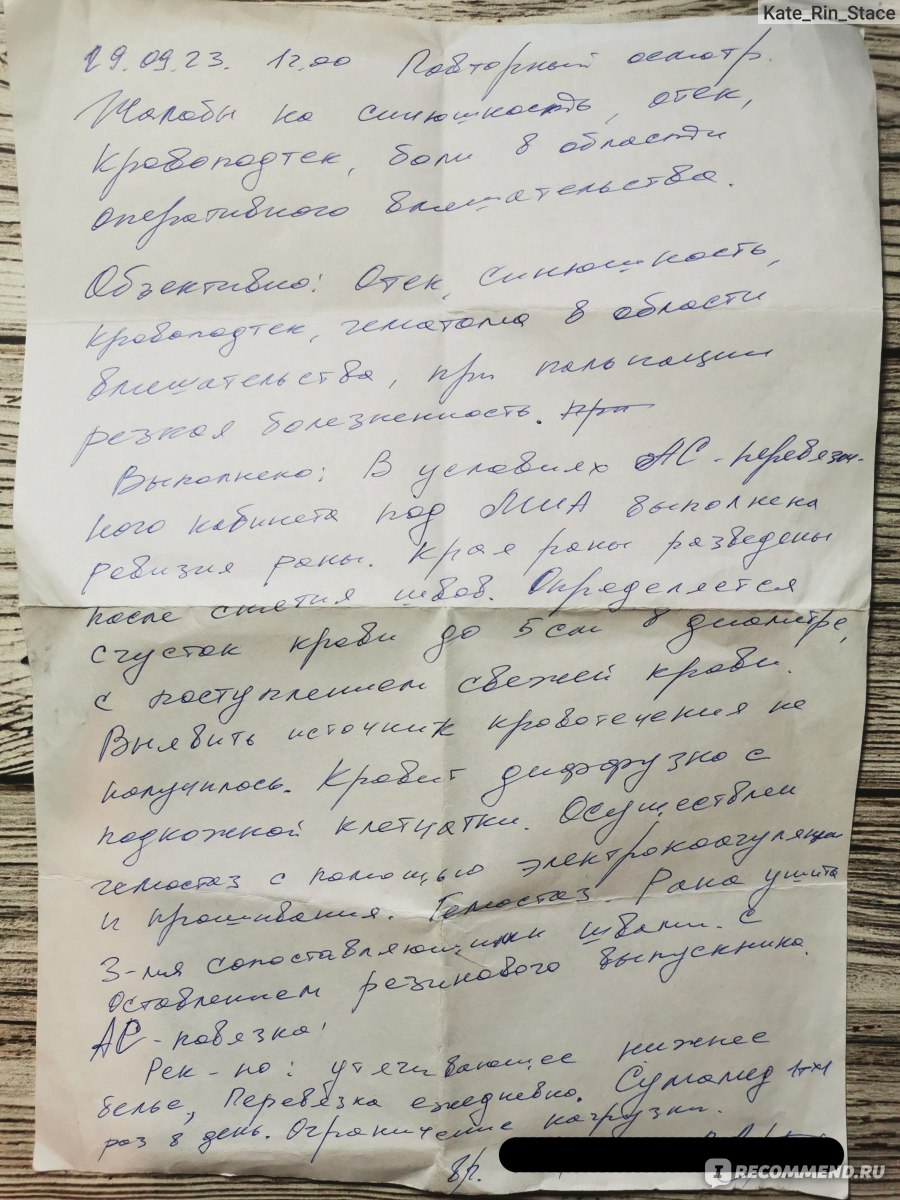 Kate_Rin_Stace
29.09.23. 12.00 Повторный осмотр.
Жалобы на синюшность, отек,
кровоподтек, боли в области
оперативного вмешательства.
Объективно: Отек, синюшность,
кровоподтек, гематома в области
вмешательства, при пальпации
резкая болезненность. при
Выполнено: В условиях АС-перевязоч-
ного кабинета под МИА выполнена
ревизия раны. Края раны разведены
после снятия швов. Определяется
сгусток крови до 5 см в диаметре,
с поступлением свежей крови.
Выявить источник кровотечения не
получилось. Кровит диффузно с
подкожной клетчатки. Осуществлен
гемостаз с помощью электрокоагуляции
и прошивания. Гемостаз. Рана ушита
3-мя сопоставляющими швами. С
оставлением резинового выпускника.
АС-повязка.
Рек-но: утягивающее нижнее
белье, Перевязка ежедневно. Сумамед 1т×1
раз в день. Ограничение нагрузки.
Вр.
IRECOMMEND.RU